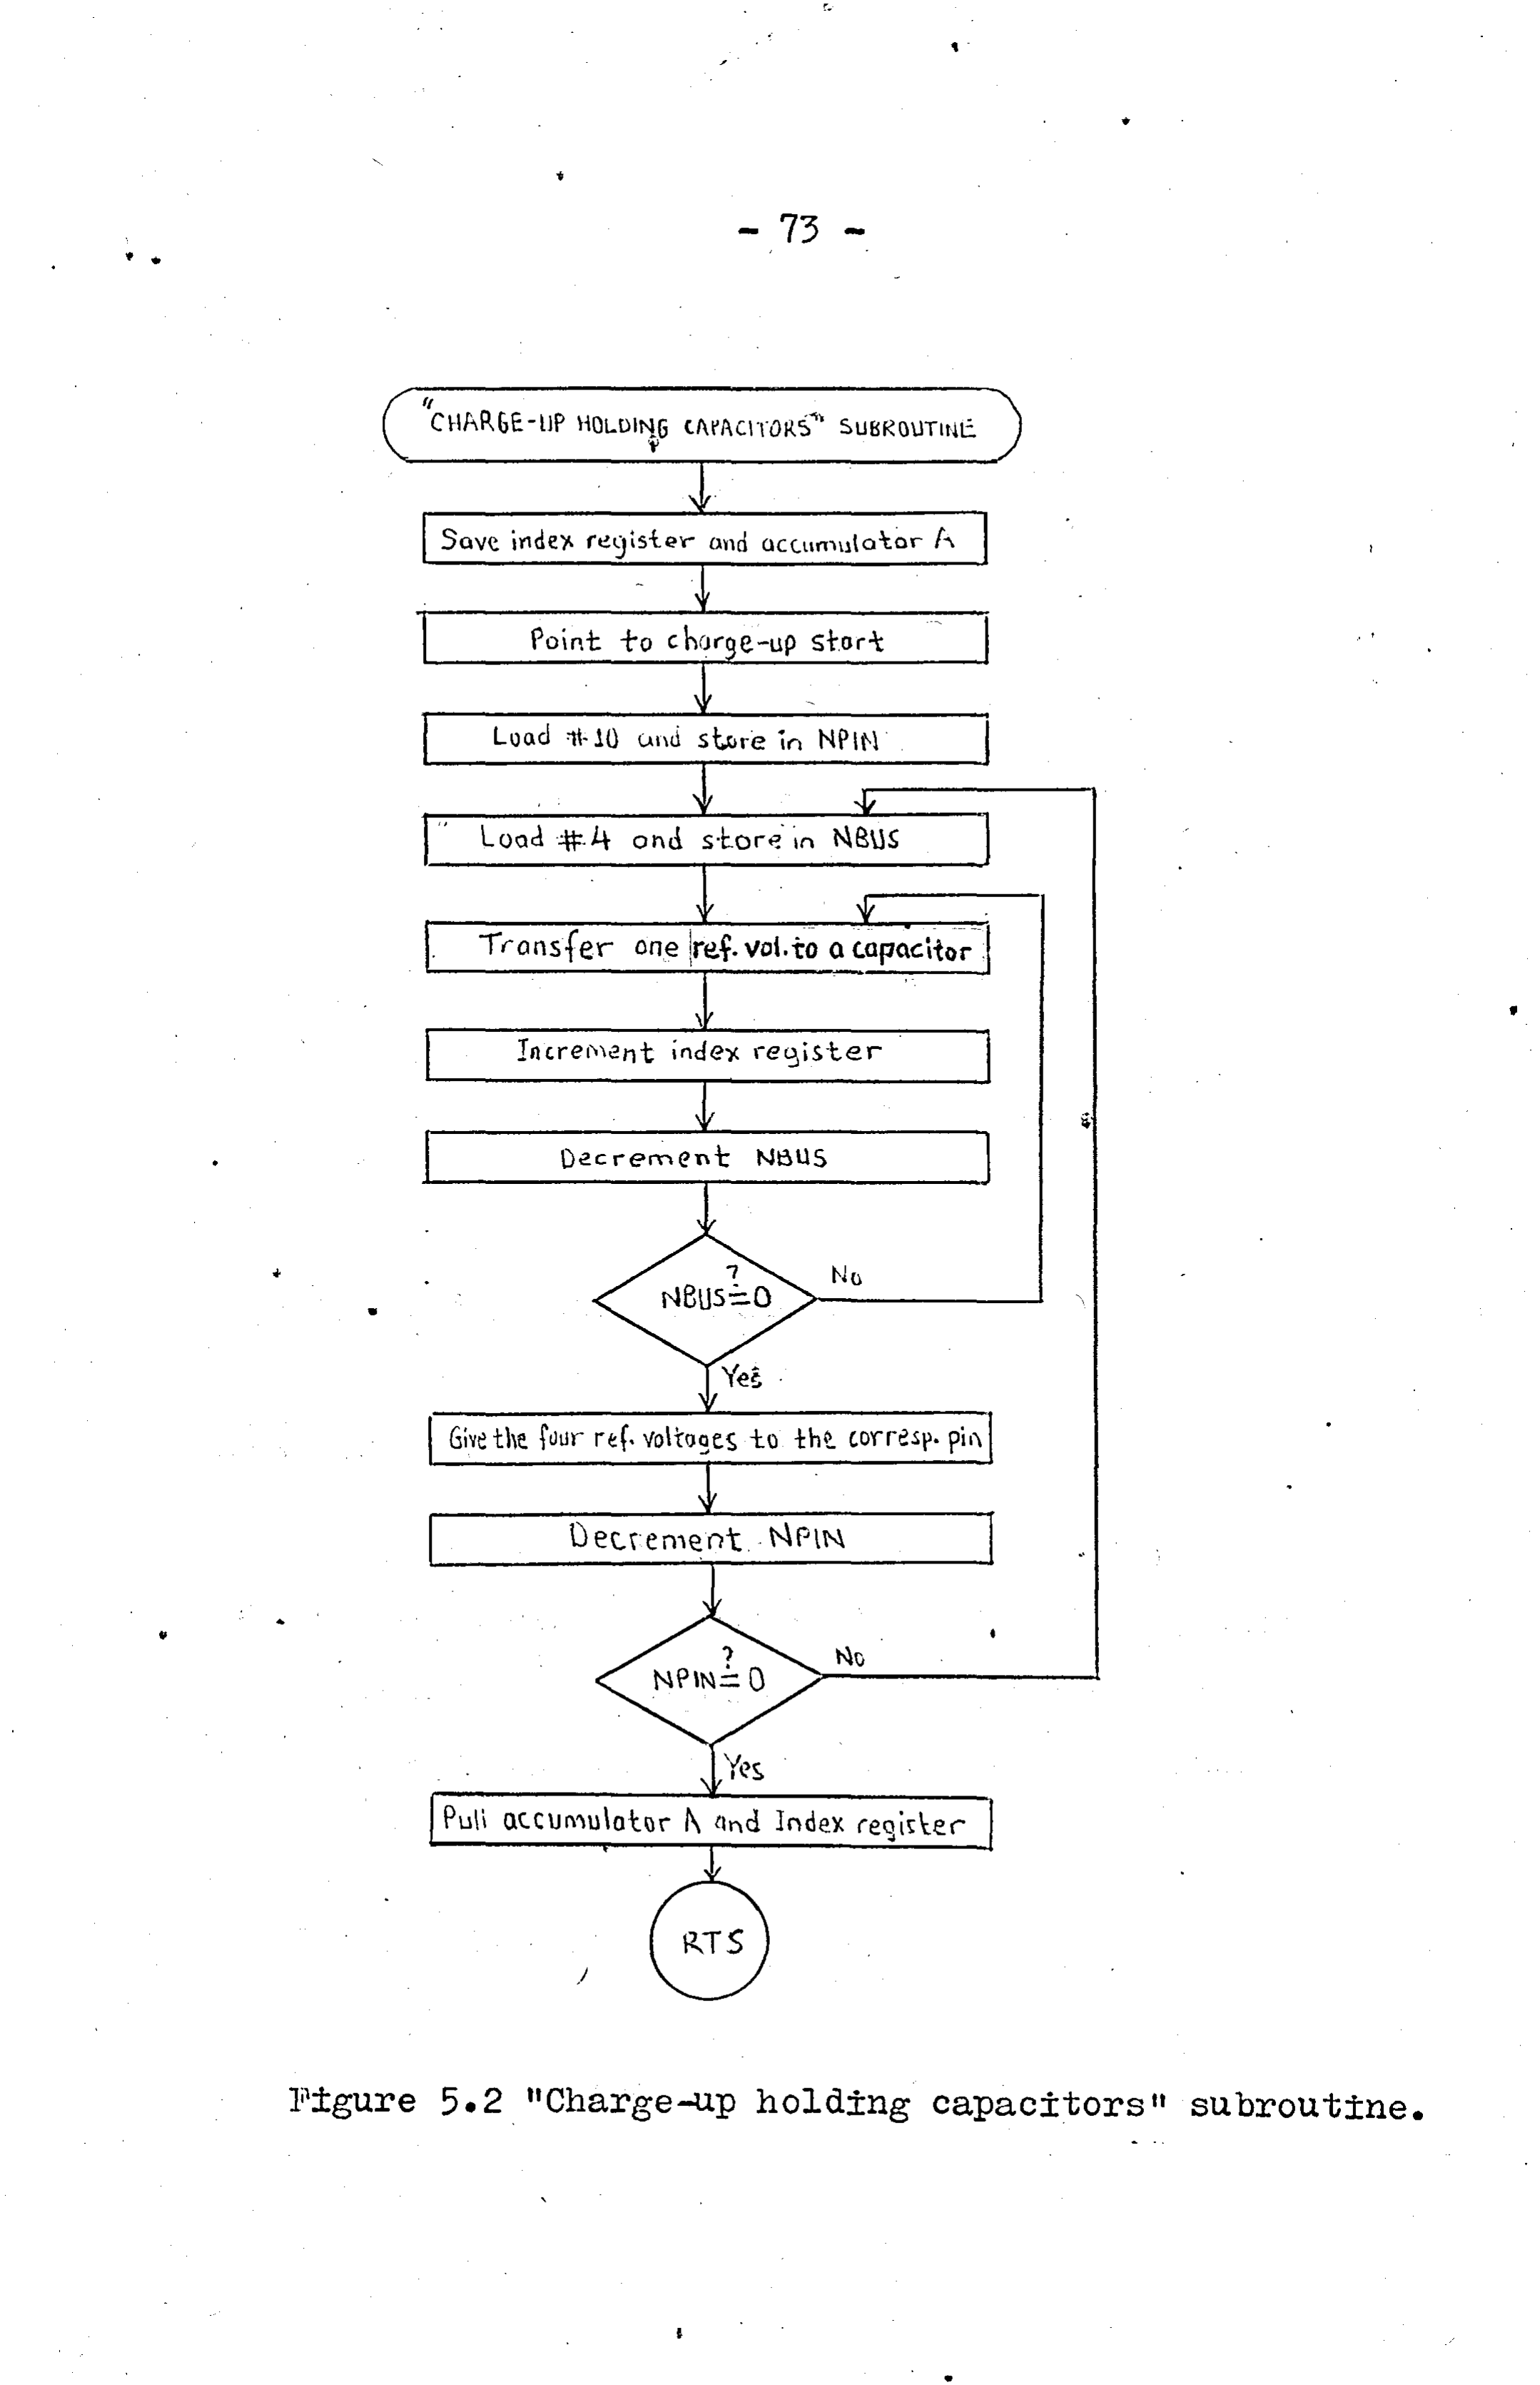 - 73 -
"CHARGE-UP HOLDING CAPACITORS" SUBROUTINE
Save index register and accumulator A
Point to charge-up start
Load #10 and store in NPIN
Load #4 and store in NBUS
Transfer one ref. vol. to a capacitor
Increment index register
Decrement NBUS
NBUS ?= 0
No
Yes
Give the four ref. voltages to the corresp. pin
Decrement NPIN
NPIN ?= 0
No
Yes
Pull accumulator A and Index register
RTS
Figure 5.2 "Charge-up holding capacitors" subroutine.